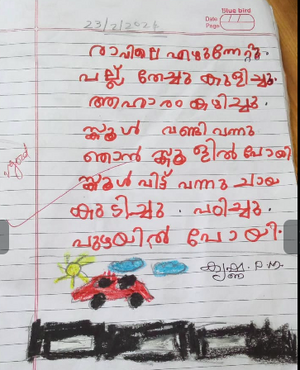 Blue bird
Date
Page
23/2/2026
രാവിലെ എഴുന്നേറ്റു.
പല്ല് തേച്ചു കുളിച്ചു.
ആഹാരം കഴിച്ചു.
സ്കൂൾ വണ്ടി വന്നു
ഞാൻ സ്കൂളിൽ പോയി
സ്കൂൾ വിട്ട് വന്നു ചായ
കുടിച്ചു. പഠിച്ചു.
പുഴയിൽ പോയി.
good